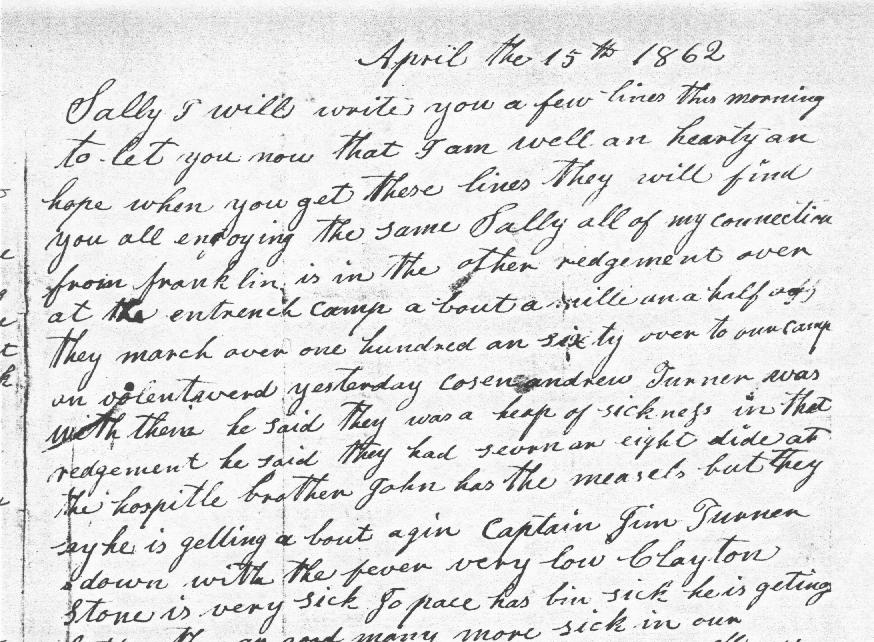 April the 15th 1862
Sally I will write you a few lines this morning
to let you now that I am well an hearty an
hope when you get these lines they will find
you all enjoying the same Sally all of my connection
from franklin is in the other redgement over
at the entrench camp a bout a mille an a half off
they march over one hundred an sixty over to our camp
an volentaverd yesterday cosen andrew Turner was
with them he said they was a heap of sickness in that
redgement he said they had severn an eight dide at
the hospitle brother John has the measels but they
say he is getting a bout agin Captain Jim Turner
down with the fever very low Clayton
Stone is very sick Jo pace has bin sick he is geting
many more sick in our